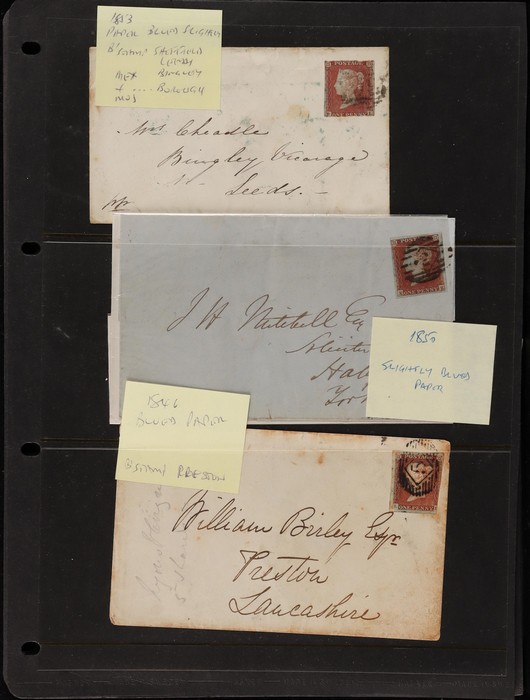 1853
PAPER BLUED SLIGHTLY
B'STAMP SHEFFIELD
LEEDS
BINGLEY
+ .... BOROUGH
POSTAGE
ONE PENNY
Mrs Cheadle
Bingley Vicarage
Leeds. –
POST
ONE PENNY
J H Mitchell Esq
Hal
York
1850
SLIGHTLY BLUED
PAPER
1846
BLUED PAPER
B'STAMP PRESTON
ONE PENNY
William Birley Esqr
Preston
Lancashire